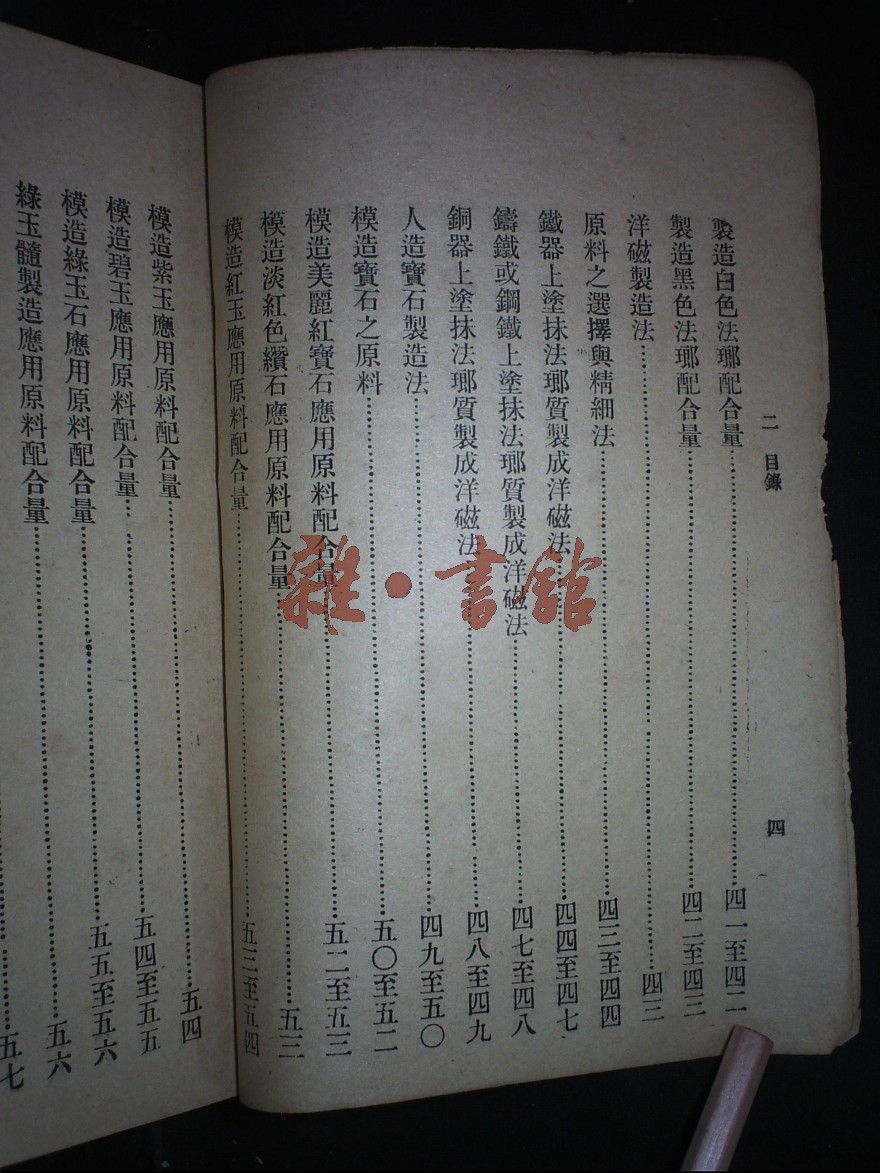 二 目錄 四
製造白色法瑯配合量 四一至四二
製造黑色法瑯配合量 四二至四三
洋磁製造法 四三
原料之選擇與精細法 四三至四四
鐵器上塗抹法瑯質製成洋磁法 四四至四七
鑄鐵或鋼鐵上塗抹法瑯質製成洋磁法 四七至四八
銅器上塗抹法瑯質製成洋磁法 四八至四九
人造寶石製造法 四九至五〇
模造寶石之原料 五〇至五二
模造美麗紅寶石應用原料配合量 五二至五三
模造淡紅色鑽石應用原料配合量 五三
模造紅玉應用原料配合量 五三至五四
模造紫玉應用原料配合量 五四
模造碧玉應用原料配合量 五四至五五
模造綠玉石應用原料配合量 五五至五六
綠玉髓製造應用原料配合量 五六
五七
雜·書館